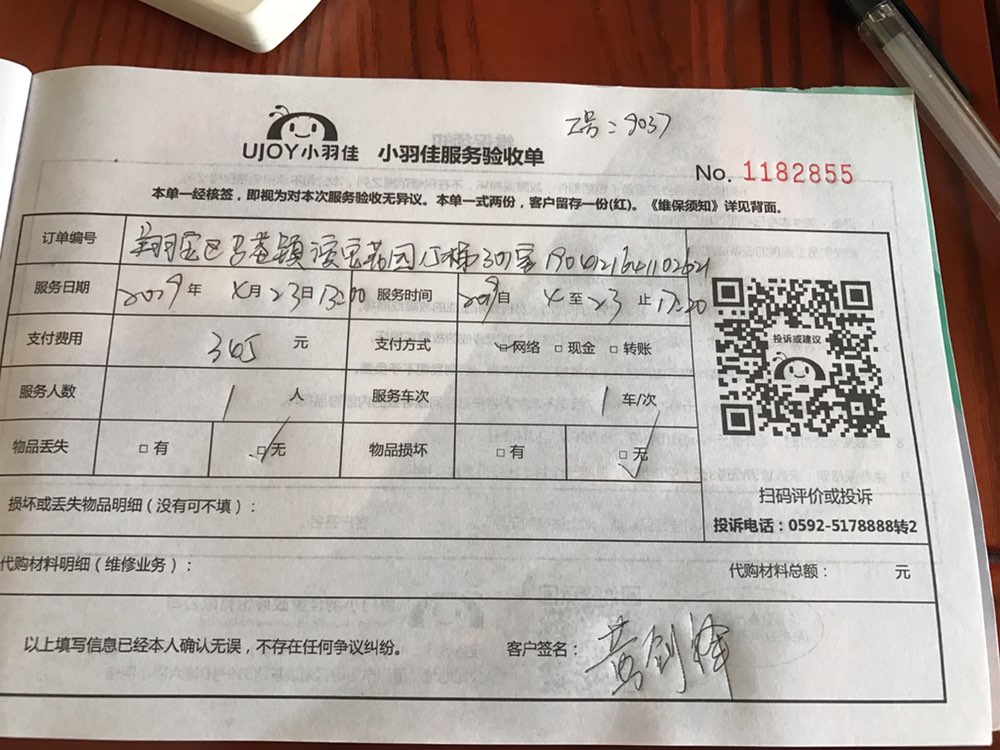 工号:9037
UJOY小羽佳 小羽佳服务验收单
No. 1182855
本单一经核签,即视为对本次服务验收无异议。本单一式两份,客户留存一份(红)。《维保须知》详见背面。
订单编号 翔安区马巷镇 花园 栋307室
服务日期 2019年 4月23日13:00 服务时间 2019自 4至23止17:20
支付费用 305 元 支付方式 网络 现金 转账
服务人数 1 人 服务车次 1 车/次
物品丢失 有 无 物品损坏 有 无
投诉或建议
损坏或丢失物品明细(没有可不填):
扫码评价或投诉
投诉电话:0592-5178888转2
代购材料明细(维修业务): 代购材料总额: 元
以上填写信息已经本人确认无误,不存在任何争议纠纷。 客户签名:黄剑锋